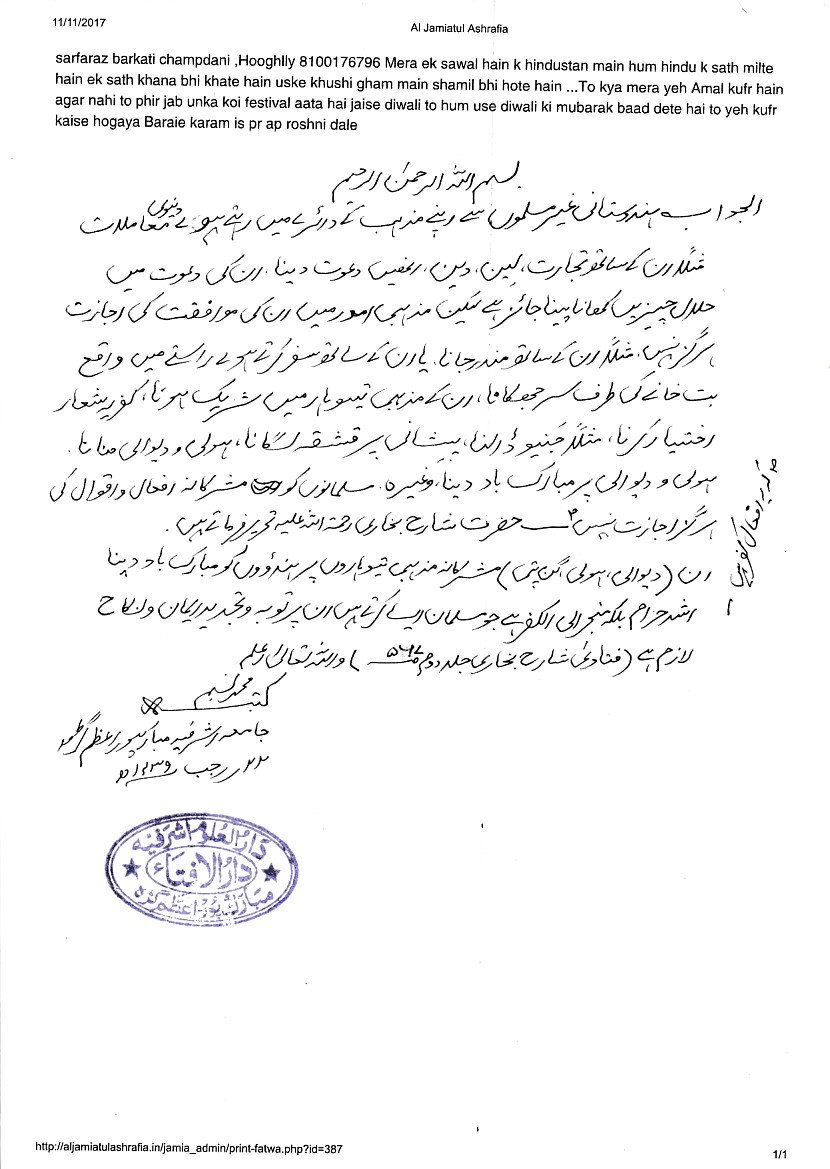 11/11/2017
Al Jamiatul Ashrafia
sarfaraz barkati champdani ,Hooghlly 8100176796 Mera ek sawal hain k hindustan main hum hindu k sath milte
hain ek sath khana bhi khate hain uske khushi gham main shamil bhi hote hain ...To kya mera yeh Amal kufr hain
agar nahi to phir jab unka koi festival aata hai jaise diwali to hum use diwali ki mubarak baad dete hai to yeh kufr
kaise hogaya Baraie karam is pr ap roshni dale
بسم اللہ الرحمن الرحیم
الجواب ہندوستانی غیر مسلموں سے اپنے مذہب کے دائرے میں رہتے ہوئے دنیوی معاملات
مثلاً ان کے ساتھ تجارت، لین، دین، انھیں دعوت دینا، ان کی دعوت میں
حلال چیزیں کھانا پینا جائز ہے لیکن مذہبی امور میں ان کی موافقت کی اجازت
ہرگز نہیں، مثلاً ان کے ساتھ مندر جانا، یا ان کے ساتھ سفر کرتے ہوئے راستے میں واقع
بت خانے کی طرف سر جھکانا، ان کے مذہبی تیوہار میں شریک ہونا، کفری شعار
اختیار کرنا، مثلاً جنیو ڈالنا، پیشانی پر قشقہ لگانا، ہولی و دیوالی منانا
ہولی و دیوالی پر مبارک باد دینا، وغیرہ۔ مسلمانوں کو مشرکانہ افعال و اقوال کی
ہرگز اجازت نہیں حضرت شارح بخاری رحمۃ اللہ علیہ تحریر فرماتے ہیں۔
ان (دیوالی، ہولی، گن پتی) مشرکانہ مذہبی تیوہاروں پر ہندؤوں کو مبارک باد دینا
اشد حرام بلکہ منجر الی الکفر ہے جو مسلمان ایسے کرتے ہیں ان پر توبہ و تجدید ایمان و نکاح
لازم ہے (فتاویٰ شارح بخاری جلد دوم) واللہ تعالیٰ اعلم
کتبہ محمد نسیم
جامعہ اشرفیہ مبارکپور اعظم گڑھ
۲۲ رجب ۱۴۳۹ھ
دارالعلوم اشرفیہ
دارالافتاء
مبارکپور اعظم گڑھ
http://aljamiatulashrafia.in/jamia_admin/print-fatwa.php?id=387
1/1